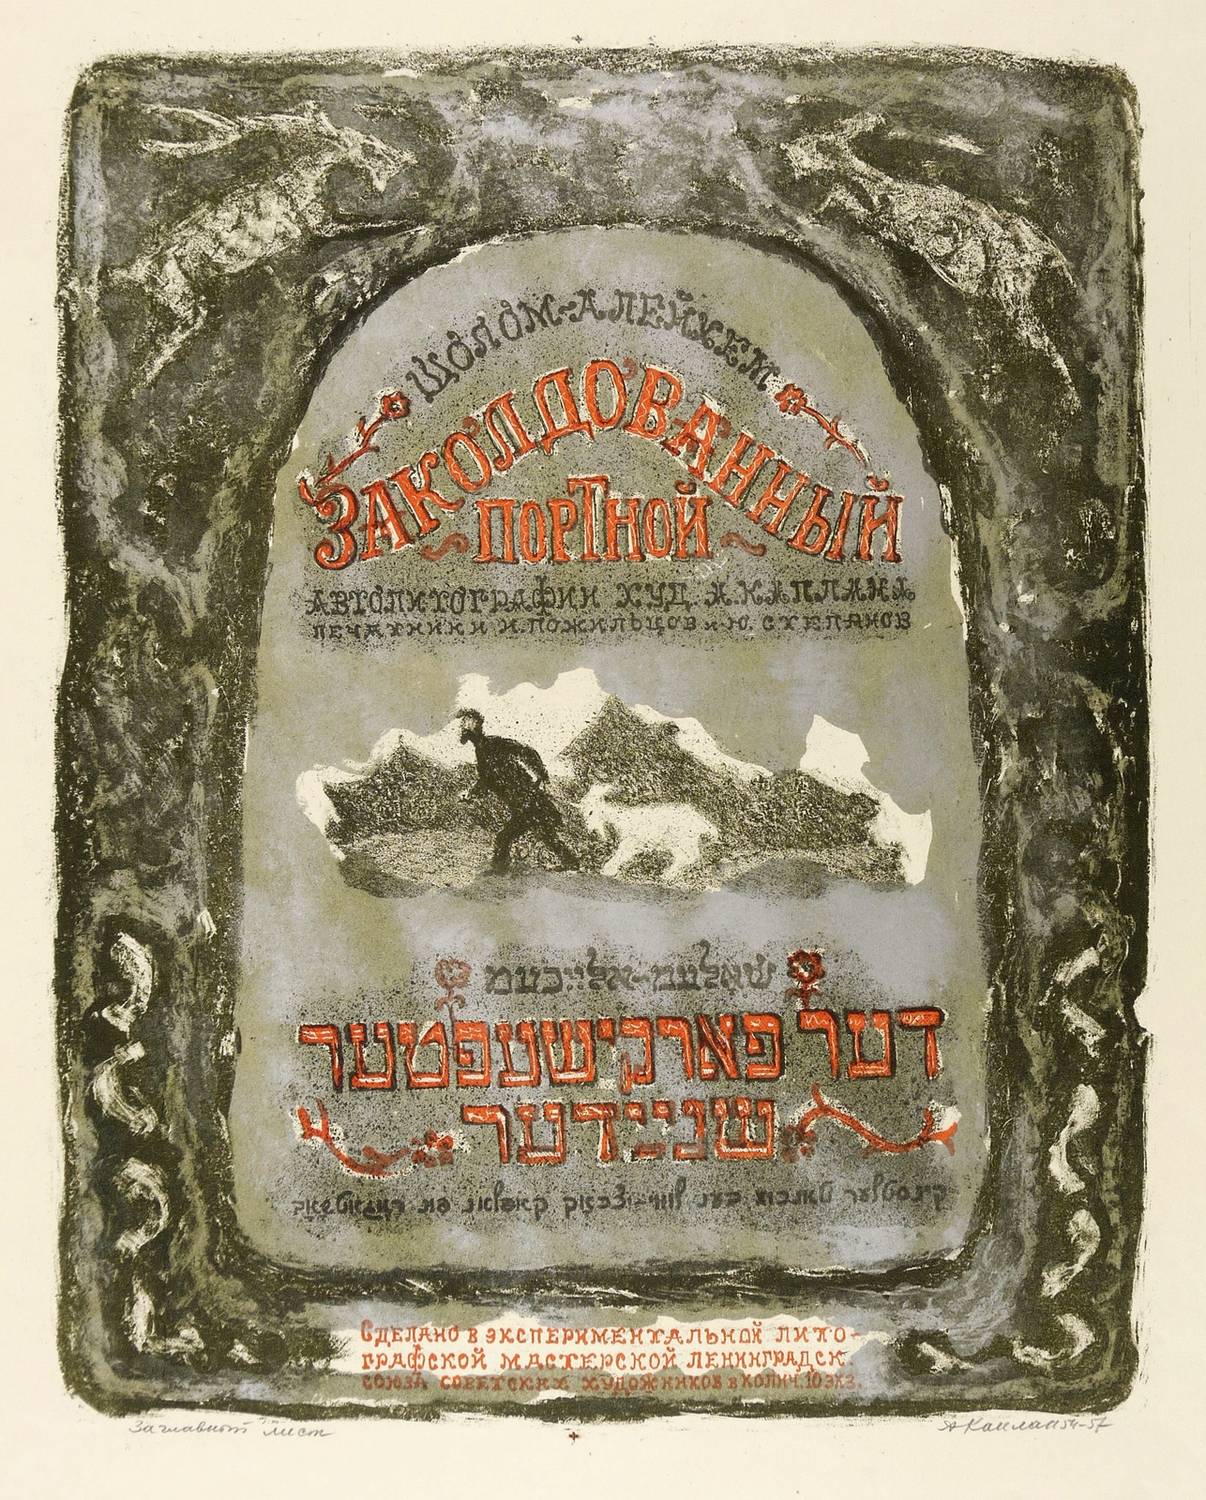 ШОЛОМ-АЛЕЙХЕМ
ЗАКОЛДОВАННЫЙ
ПОРТНОЙ
АВТОЛИТОГРАФИИ ХУД. А. КАПЛАНА
ПЕЧАТНИКИ И. ПОЖИЛЬЦОВ и Ю. СТЕПАНОВ
שאלעם-אלייכעם
דער פארקישעפטער
שניידער
קאפלאן
СДЕЛАНО В ЭКСПЕРИМЕНТАЛЬНОЙ ЛИТО-
ГРАФСКОЙ МАСТЕРСКОЙ ЛЕНИНГРАДСК
СОЮЗА СОВЕТСКИХ ХУДОЖНИКОВ В КОЛИЧ. 10 ЭКЗ.
Заглавный лист
А Каплан 54-57